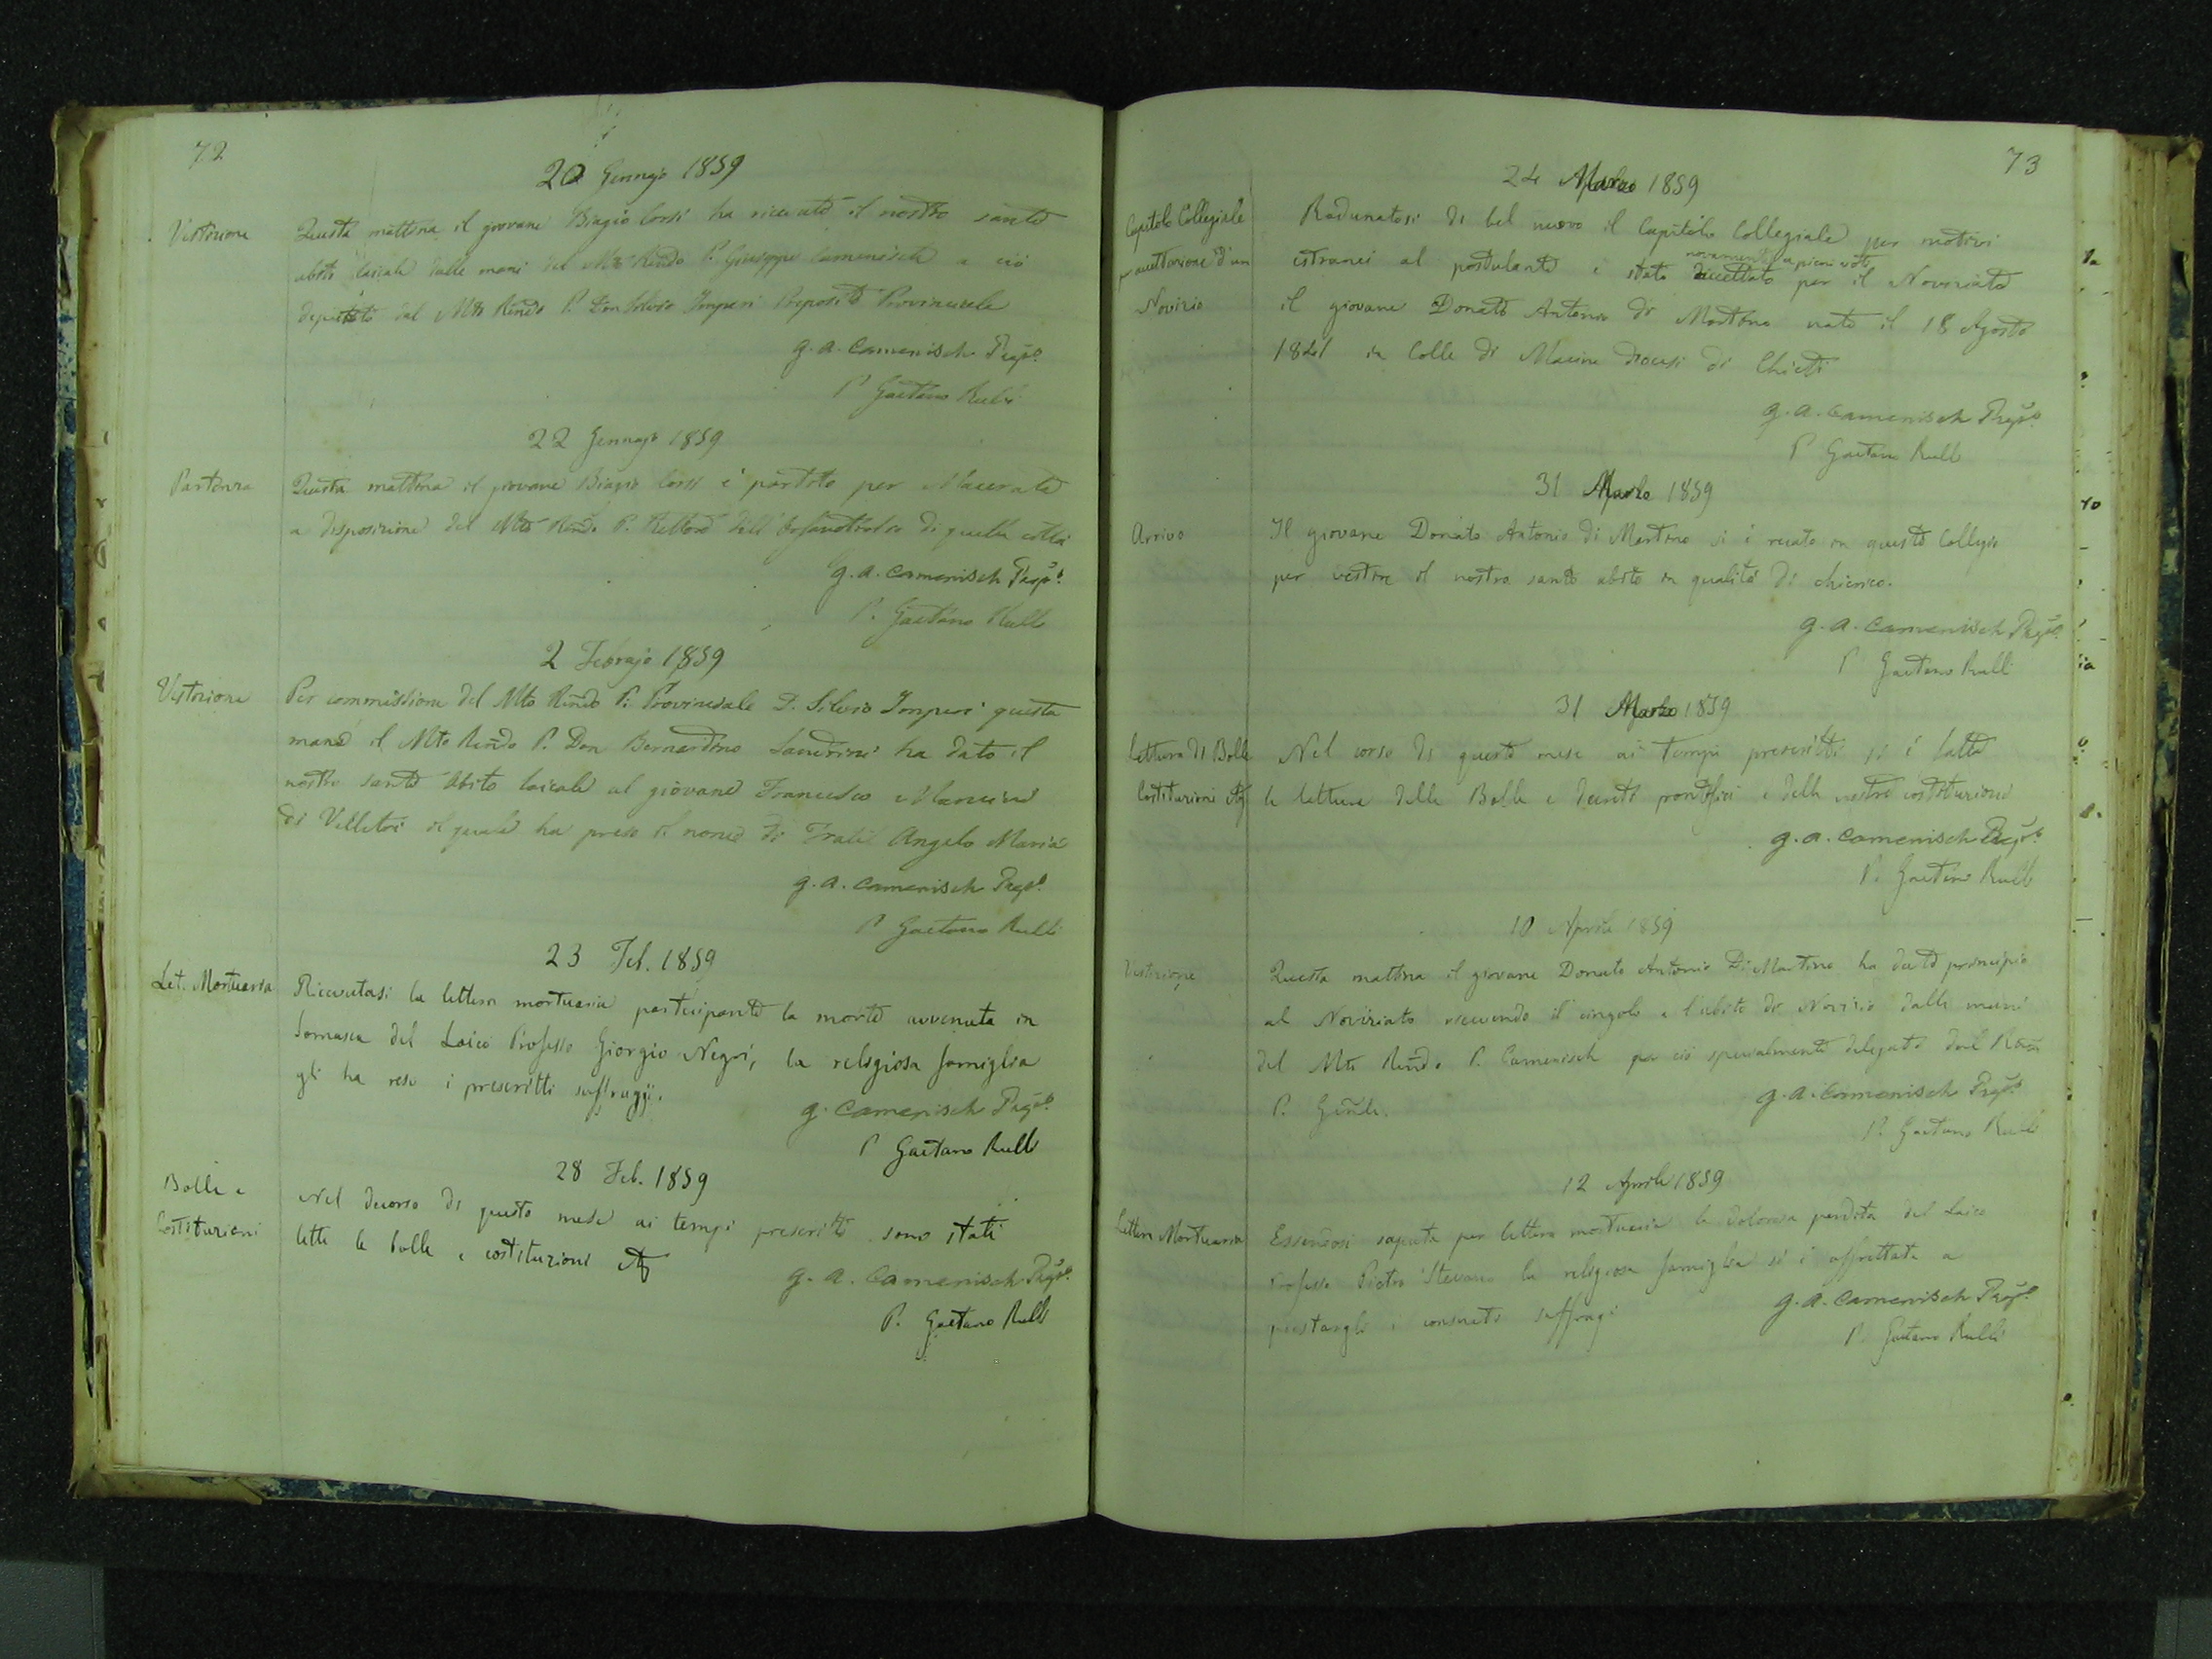 72
20 Gennajo 1859
Vestizione
Questa mattina il giovane Biagio Corsi ha ricevuto il nostro santo
abito laicale dalle mani del Mto Rendo P. Giuseppe Camenisch a ciò
deputato dal Mto Rendo P. Don Silvio Imperi Preposito Provinciale
G. A. Camenisch Prepto
P Gaetano Rulli
22 Gennajo 1859
Partenza
Questa mattina il giovane Biagio Corsi è partito per Macerata
a disposizione del Mto Rendo P. Rettore dell' Orfanotrofio di quella città
G. A. Camenisch Prepto
P. Gaetano Rulli
2 Febrajo 1859
Vestizione
Per commissione del Mto Rendo P. Provinciale D. Silvio Imperi questa
mane il Mto Rendo P. Don Bernardino Sandrini ha dato il
nostro santo abito laicale al giovane Francesco Mancini
di Velletri il quale ha preso il nome di Fratel Angelo Maria
G. A. Camenisch Prepto
P Gaetano Rulli
23 Feb. 1859
Let. Mortuaria
Ricevutasi la lettera mortuaria partecipante la morte avvenuta in
Somasca del Laico Professo Giorgio Negri, la religiosa famiglia
gli ha reso i prescritti suffragj.
G. Camenisch Prepto
P Gaetano Rulli
28 Feb. 1859
Bolle e
Costituzioni
Nel decorso di questo mese ai tempi prescritti sono stati
lette le bolle e costituzioni
G. A. Camenisch Prepto
P. Gaetano Rulli
73
24 Marzo 1859
Capitolo Collegiale
per accettazione d'un
Novizio
Radunatosi di bel nuovo il Capitolo Collegiale per motivi
novamente a pieni voti
estranei al postulante è stato accettato per il Noviziato
il giovane Donato Antonio di Martino nato il 18 Agosto
1841 in Colle di Macine diocesi di Chieti
G. A. Camenisch Prepto
P Gaetano Rulli
31 Marzo 1859
Arrivo
Il giovane Donato Antonio di Martino si è recato in questo Collegio
per vestire il nostro santo abito in qualità di chierico.
G. A. Camenisch Prepto
P Gaetano Rulli
31 Marzo 1859
Lettura di Bolle
Costituzioni
Nel corso di questo mese ai tempi prescritti si è fatta
la lettura delle Bolle e decreti pontifici e delle nostre costituzioni
G. A. Camenisch Prepto
P. Gaetano Rulli
10 Aprile 1859
Vestizione
Questa mattina il giovane Donato Antonio Di Martino ha dato principio
al Noviziato ricevendo il cingolo e l'abito di Novizio dalle mani
del Mto Rendo P. Camenisch per ciò specialmente delegato dal
P. Genle.
G. A. Camenisch Prepto
P. Gaetano Rulli
12 Aprile 1859
Lettera Mortuaria
Essendosi saputa per lettera mortuaria la dolorosa perdita del Laico
Professo Pietro la religiosa famiglia si è affrettata a
prestargli i consueti suffragi
G. A. Camenisch Prepto
P. Gaetano Rulli